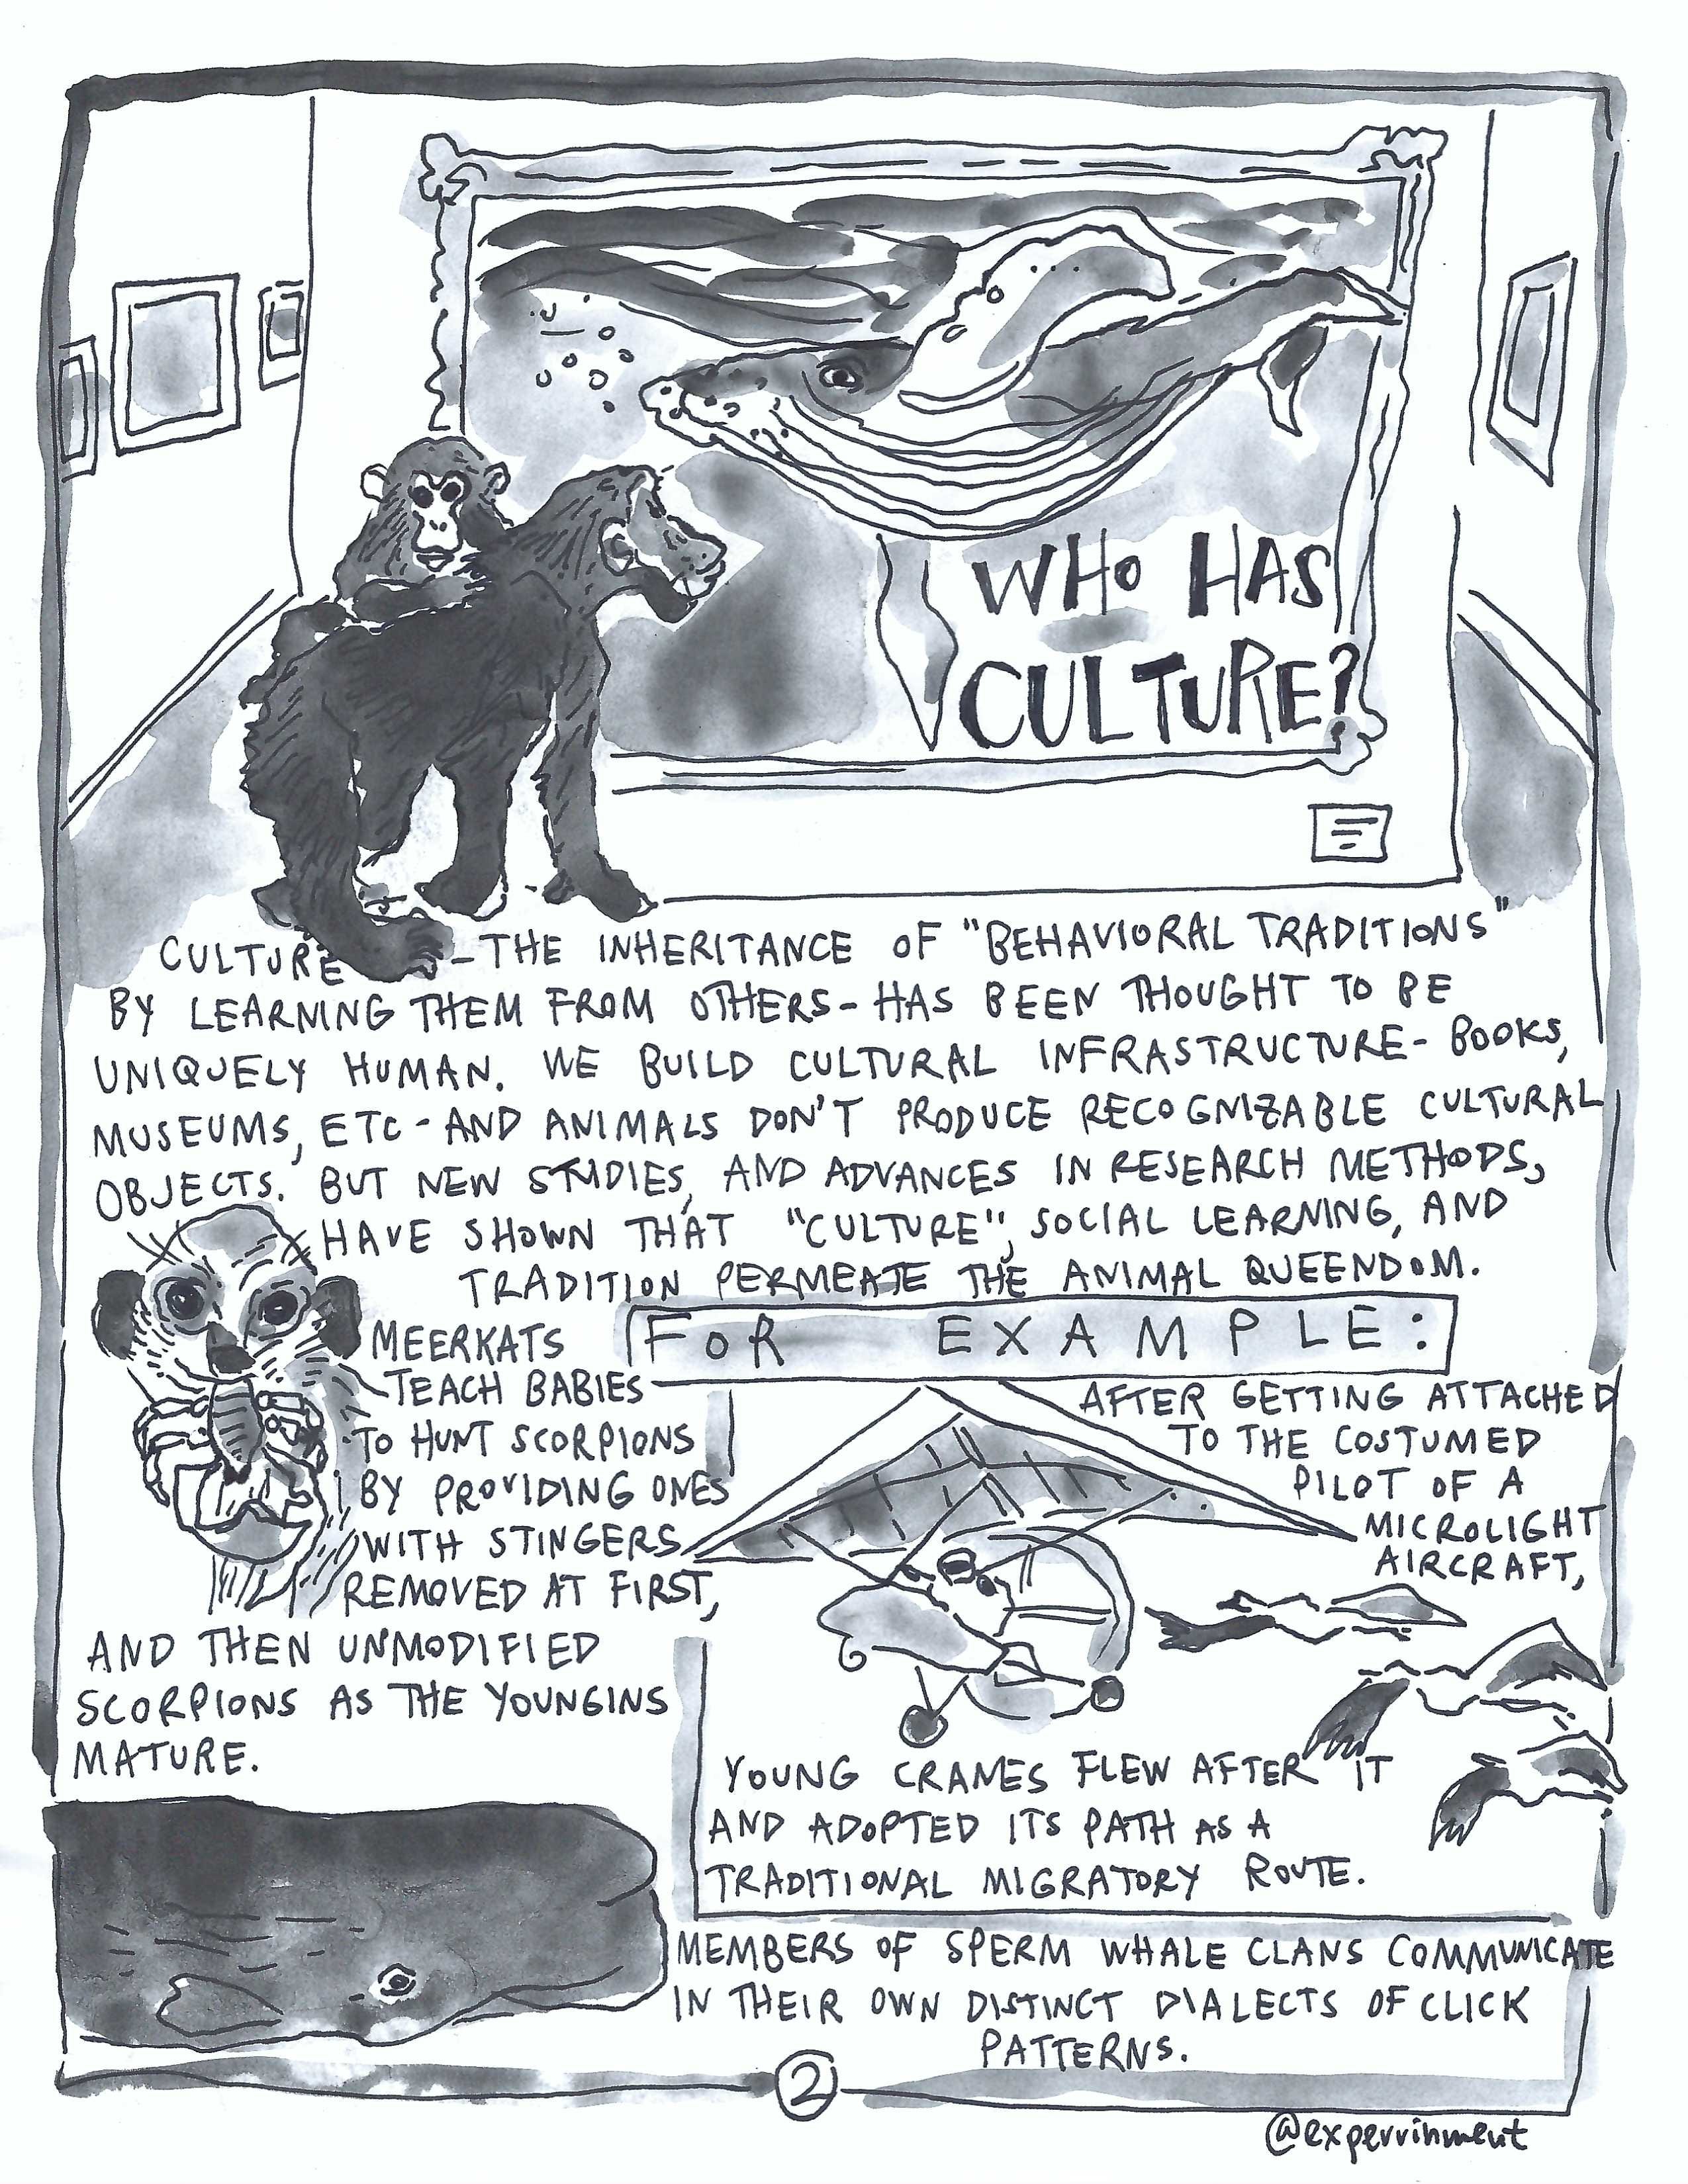 WHO HAS
CULTURE?
CULTURE - THE INHERITANCE OF "BEHAVIORAL TRADITIONS"
BY LEARNING THEM FROM OTHERS - HAS BEEN THOUGHT TO BE
UNIQUELY HUMAN. WE BUILD CULTURAL INFRASTRUCTURE - BOOKS,
MUSEUMS, ETC - AND ANIMALS DON'T PRODUCE RECOGNIZABLE CULTURAL
OBJECTS. BUT NEW STUDIES, AND ADVANCES IN RESEARCH METHODS,
HAVE SHOWN THAT "CULTURE", SOCIAL LEARNING, AND
TRADITION PERMEATE THE ANIMAL QUEENDOM.
FOR EXAMPLE:
MEERKATS
TEACH BABIES
TO HUNT SCORPIONS
BY PROVIDING ONES
WITH STINGERS
REMOVED AT FIRST,
AND THEN UNMODIFIED
SCORPIONS AS THE YOUNGINS
MATURE.
AFTER GETTING ATTACHED
TO THE COSTUMED
PILOT OF A
MICROLIGHT
AIRCRAFT,
YOUNG CRANES FLEW AFTER IT
AND ADOPTED ITS PATH AS A
TRADITIONAL MIGRATORY ROUTE.
MEMBERS OF SPERM WHALE CLANS COMMUNICATE
IN THEIR OWN DISTINCT DIALECTS OF CLICK
PATTERNS.
2
@experrinment